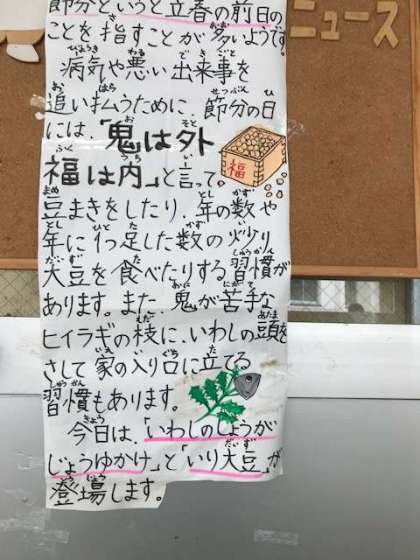 節分というと立春の前日の
ことを指すことが多いようです。
病気や悪い出来事を
追い払うために、節分の日
には、「鬼は外
福は内」と言って、
豆まきをしたり、年の数や
年に1つ足した数の炒り
大豆を食べたりする習慣が
あります。また、鬼が苦手な
ヒイラギの枝に、いわしの頭を
さして家の入り口に立てる
習慣もあります。
今日は、「いわしのしょうが
じょうゆかけ」と「いり大豆」が
登場します。
福
ニュース